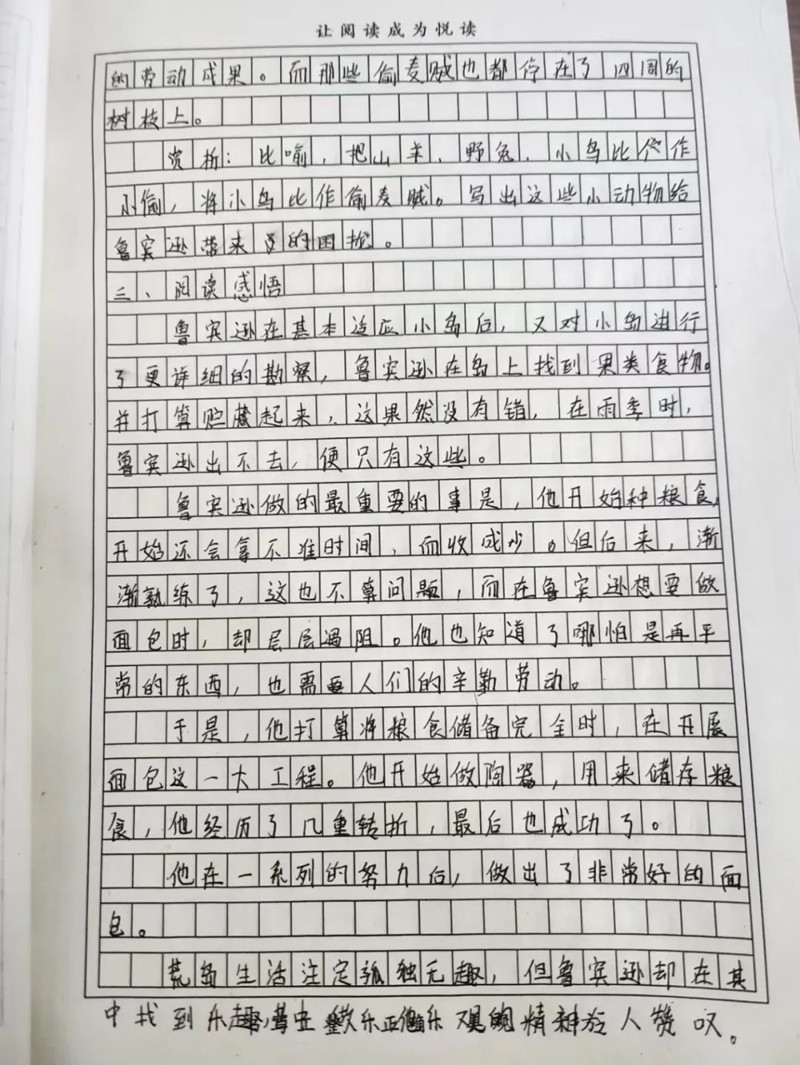 让阅读成为悦读
的劳动成果。而那些偷麦贼也都停在了四周的
树枝上。
赏析：比喻，把山羊、野兔、小鸟比作
小偷，将小鸟比作偷麦贼。写出这些小动物给
鲁宾逊带来的困扰。
三、阅读感悟
鲁宾逊在基本适应小岛后，又对小岛进行
了更详细的勘察，鲁宾逊在岛上找到果类食物。
并打算贮藏起来，这果然没有错，在雨季时，
鲁宾逊出不去，便只有这些。
鲁宾逊做的最重要的事是，他开始种粮食，
开始还会拿不准时间，而收成少。但后来，渐
渐熟练了，这也不算问题，而在鲁宾逊想要做
面包时，却层层遇阻。他也知道了哪怕是再平
常的东西，也需要人们的辛勤劳动。
于是，他打算将粮食储备完全时，在开展
面包这一大工程。他开始做陶器，用来储存粮
食，他经历了几重转折，最后也成功了。
他在一系列的努力后，做出了非常好的面
包。
荒岛生活注定孤独无趣，但鲁宾逊却在其
中找到乐趣，乐 乐观的精神令人赞叹。